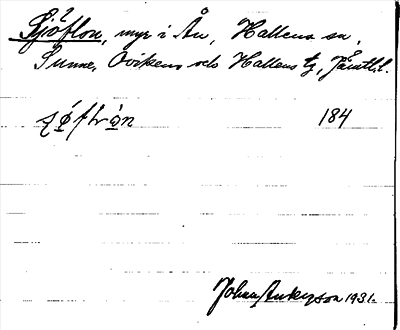 Sjöflon, myr i Ån, Hallens sn,
Sunne, Ovikens och Hallens tg, Jämtl. l.
184
Johan Ankerson 1931.